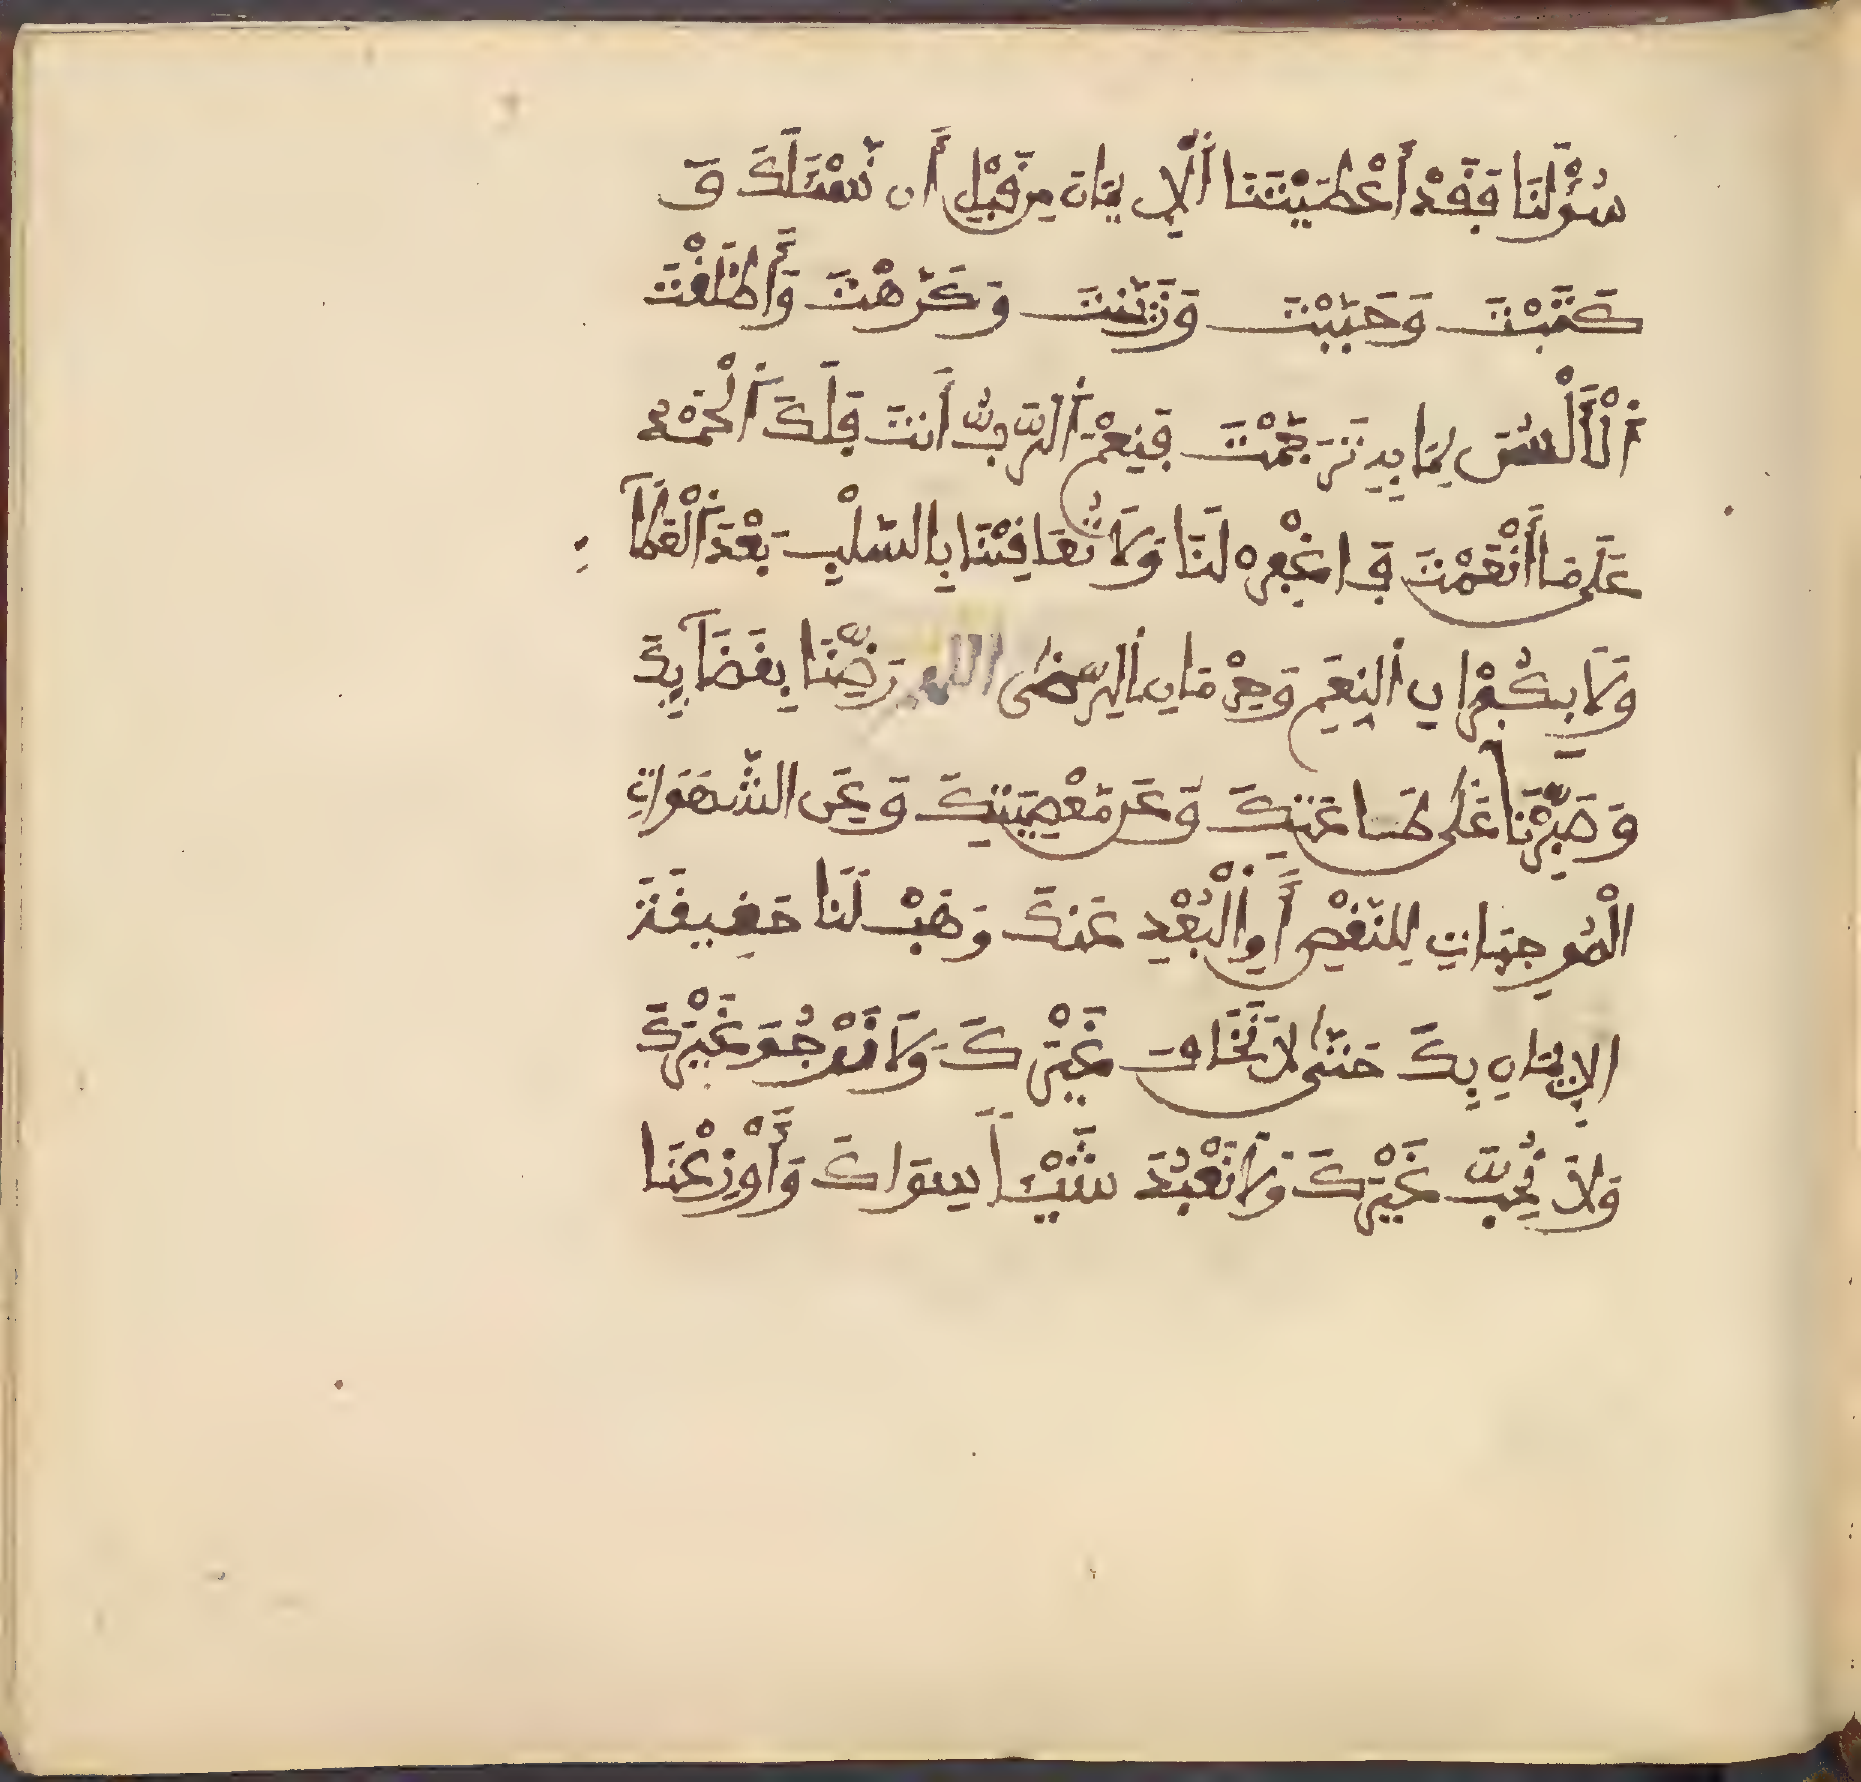 سُؤْلَنَا فَقَدْ أَعْطَيْتَنَا ألِايمَانَ مِن قَبْلِ أَن نَسْـَٔلَكَ وَ
كَتَبْتَ وَحَبَّبْتَ وَزَيَّنتَ وَكَرَّهْتَ وَأَطْلَقْتَ
ٱلْأَلْسُنَ بِمَا بِهِ تَرْجَمْتَ فَنِعْمَ ٱلرَّبُّ أَنتَ فَلَكَ ٱلْحَمْدُ
عَلَى مَا أَنْعَمْتَ فَاغْفِرْ لَنَا وَلَا تُعَاقِبْنَا بِالسَّلْبِ بَعْدَ ٱلْعَطَآ
وَلَا بِكُفْرَانِ ٱلنِّعَمِ وَحِرْمَانِ ٱلرِّضَى اللهم رَضِّنَا بِقَضَآيِكَ
وَصَبِّرْنَا عَلَى طَاعَتِكَ وَعَن مَعْصِيَتِكَ وَعَنِ الشَّهَوَاتِ
الْمُوجِبَاتِ لِلنَّقْصِ أَوِ ٱلْبُعْدِ عَنكَ وَهَبْ لَنَا حَقِيقَةَ
الِايمَانِ بِكَ حَتَّى لَا نَخَافَ غَيْرَكَ وَلَا نَرْجُوَ غَيْرَكَ
وَلَا نُحِبَّ غَيْرَكَ وَلَا نَعْبُدَ شَيْـًٔا سِوَاكَ وَأَوْزِعْنَا